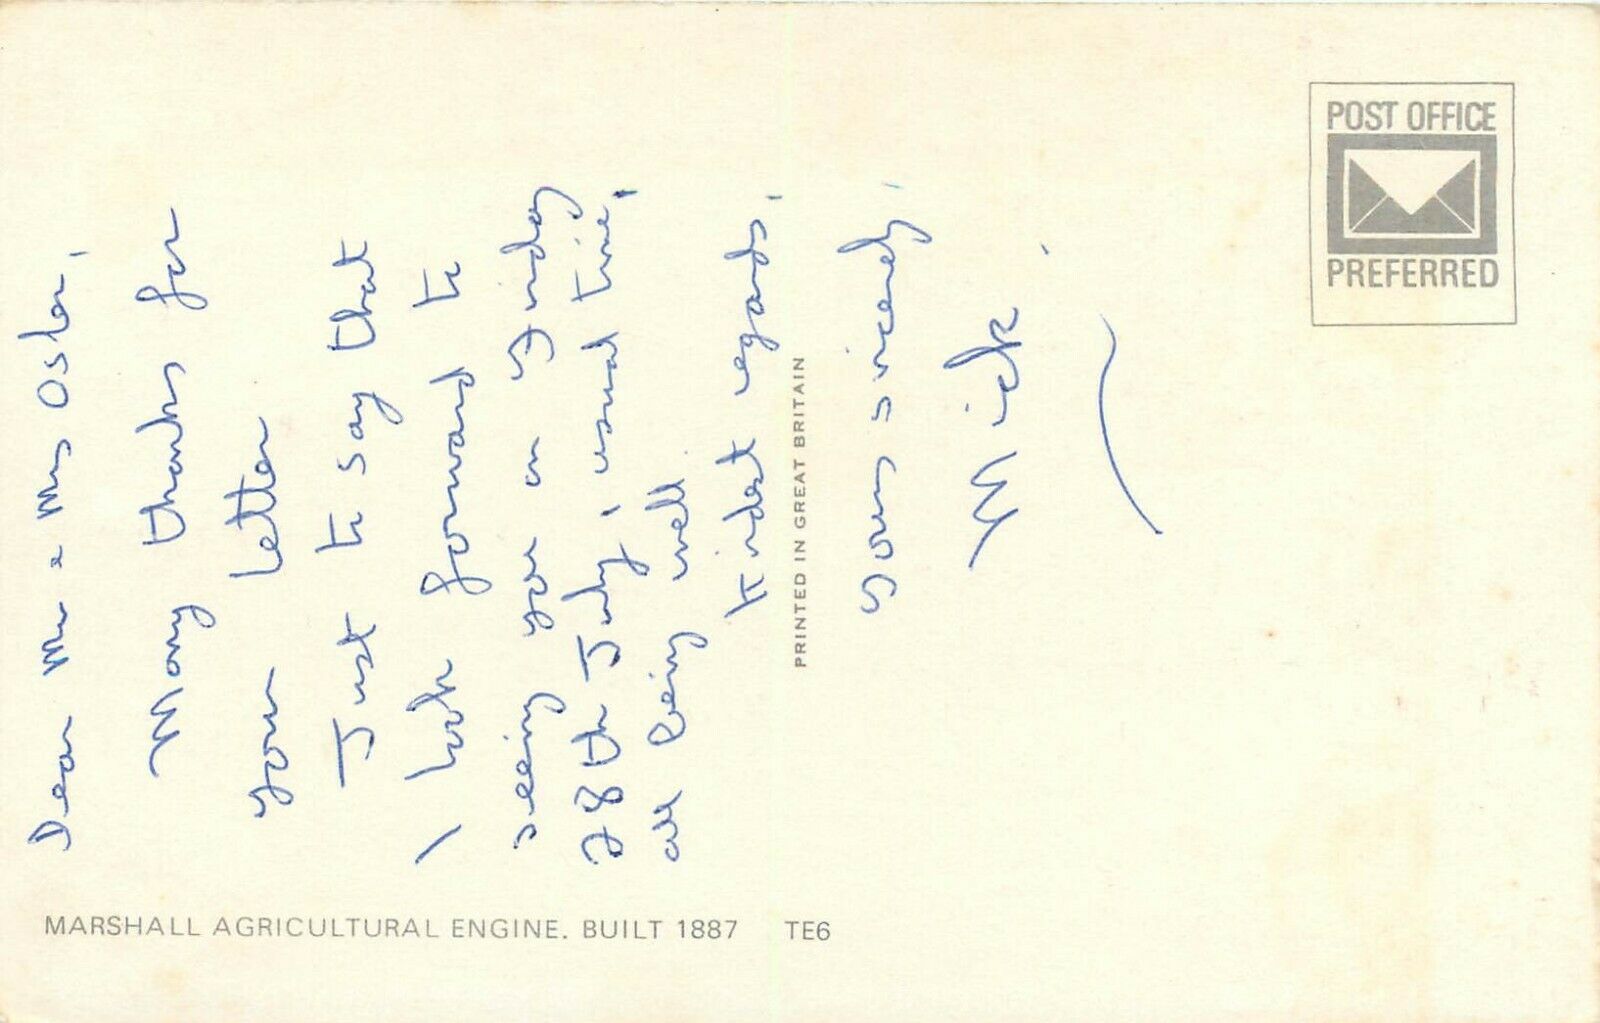 Dear Mr & Mrs Osler,
Many thanks for
your letter
Just to say that
I look forward to
seeing you on Friday
28th July, usual time,
all being well.
Kindest regards,
Yours sincerely,
Mick.
MARSHALL AGRICULTURAL ENGINE. BUILT 1887 TE6
PRINTED IN GREAT BRITAIN
POST OFFICE
PREFERRED